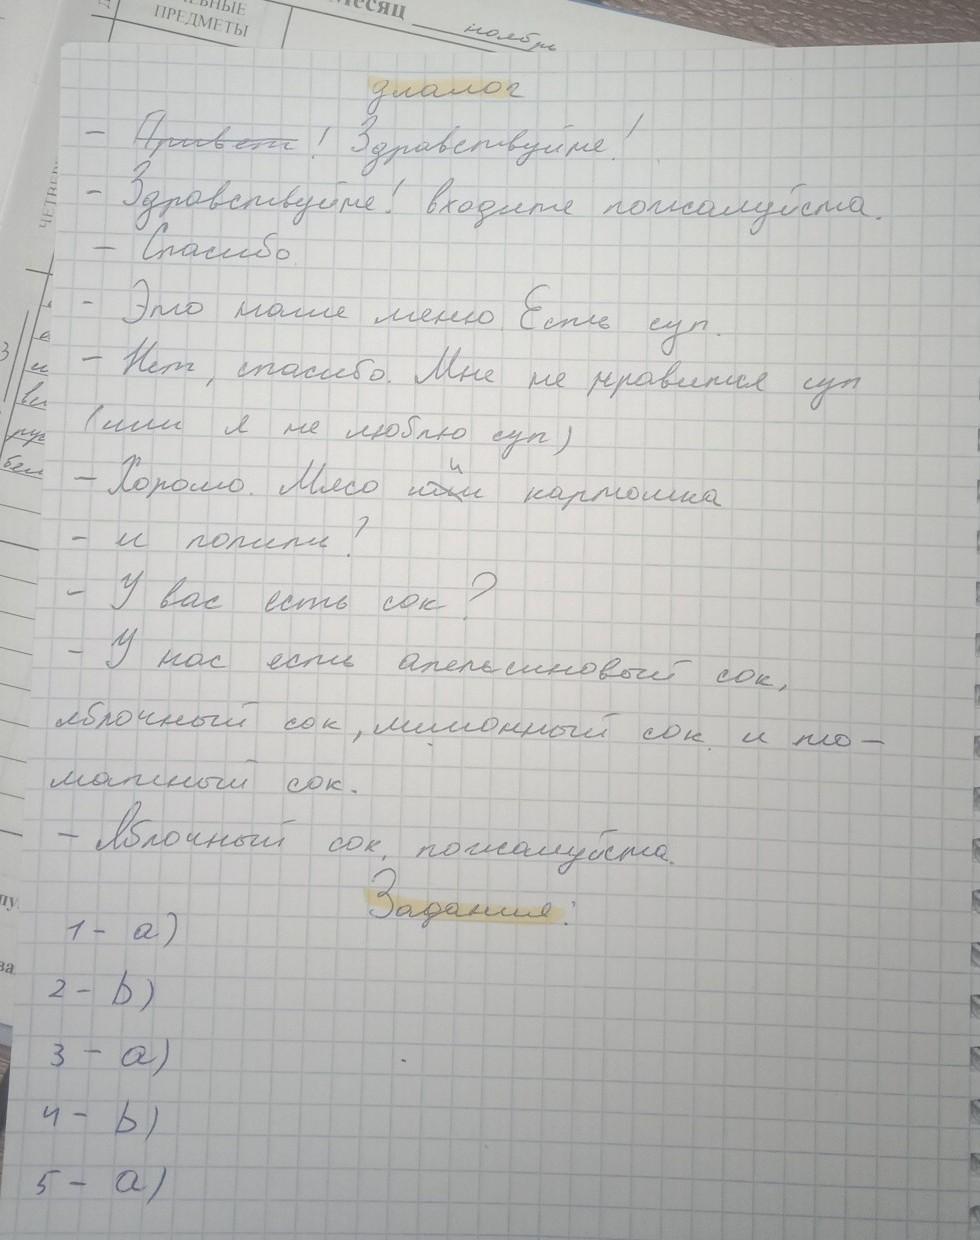 ЕБНЫЕ
ПРЕДМЕТЫ
Месяц ноябрь
диалог
- Привет! Здравствуйте!
- Здравствуйте! входите пожалуйста.
- Спасибо
- Это наше меню. Есть суп.
- Нет, спасибо. Мне не нравится суп
(или я не люблю суп)
- Хорошо. Мясо или и картошка
- и попить?
- У вас есть сок?
- У нас есть апельсиновый сок,
яблочный сок, лимонный сок и то-
матный сок.
- Яблочный сок, пожалуйста.
Задания:
1 - а)
2 - b)
3 - а)
4 - b)
5 - а)